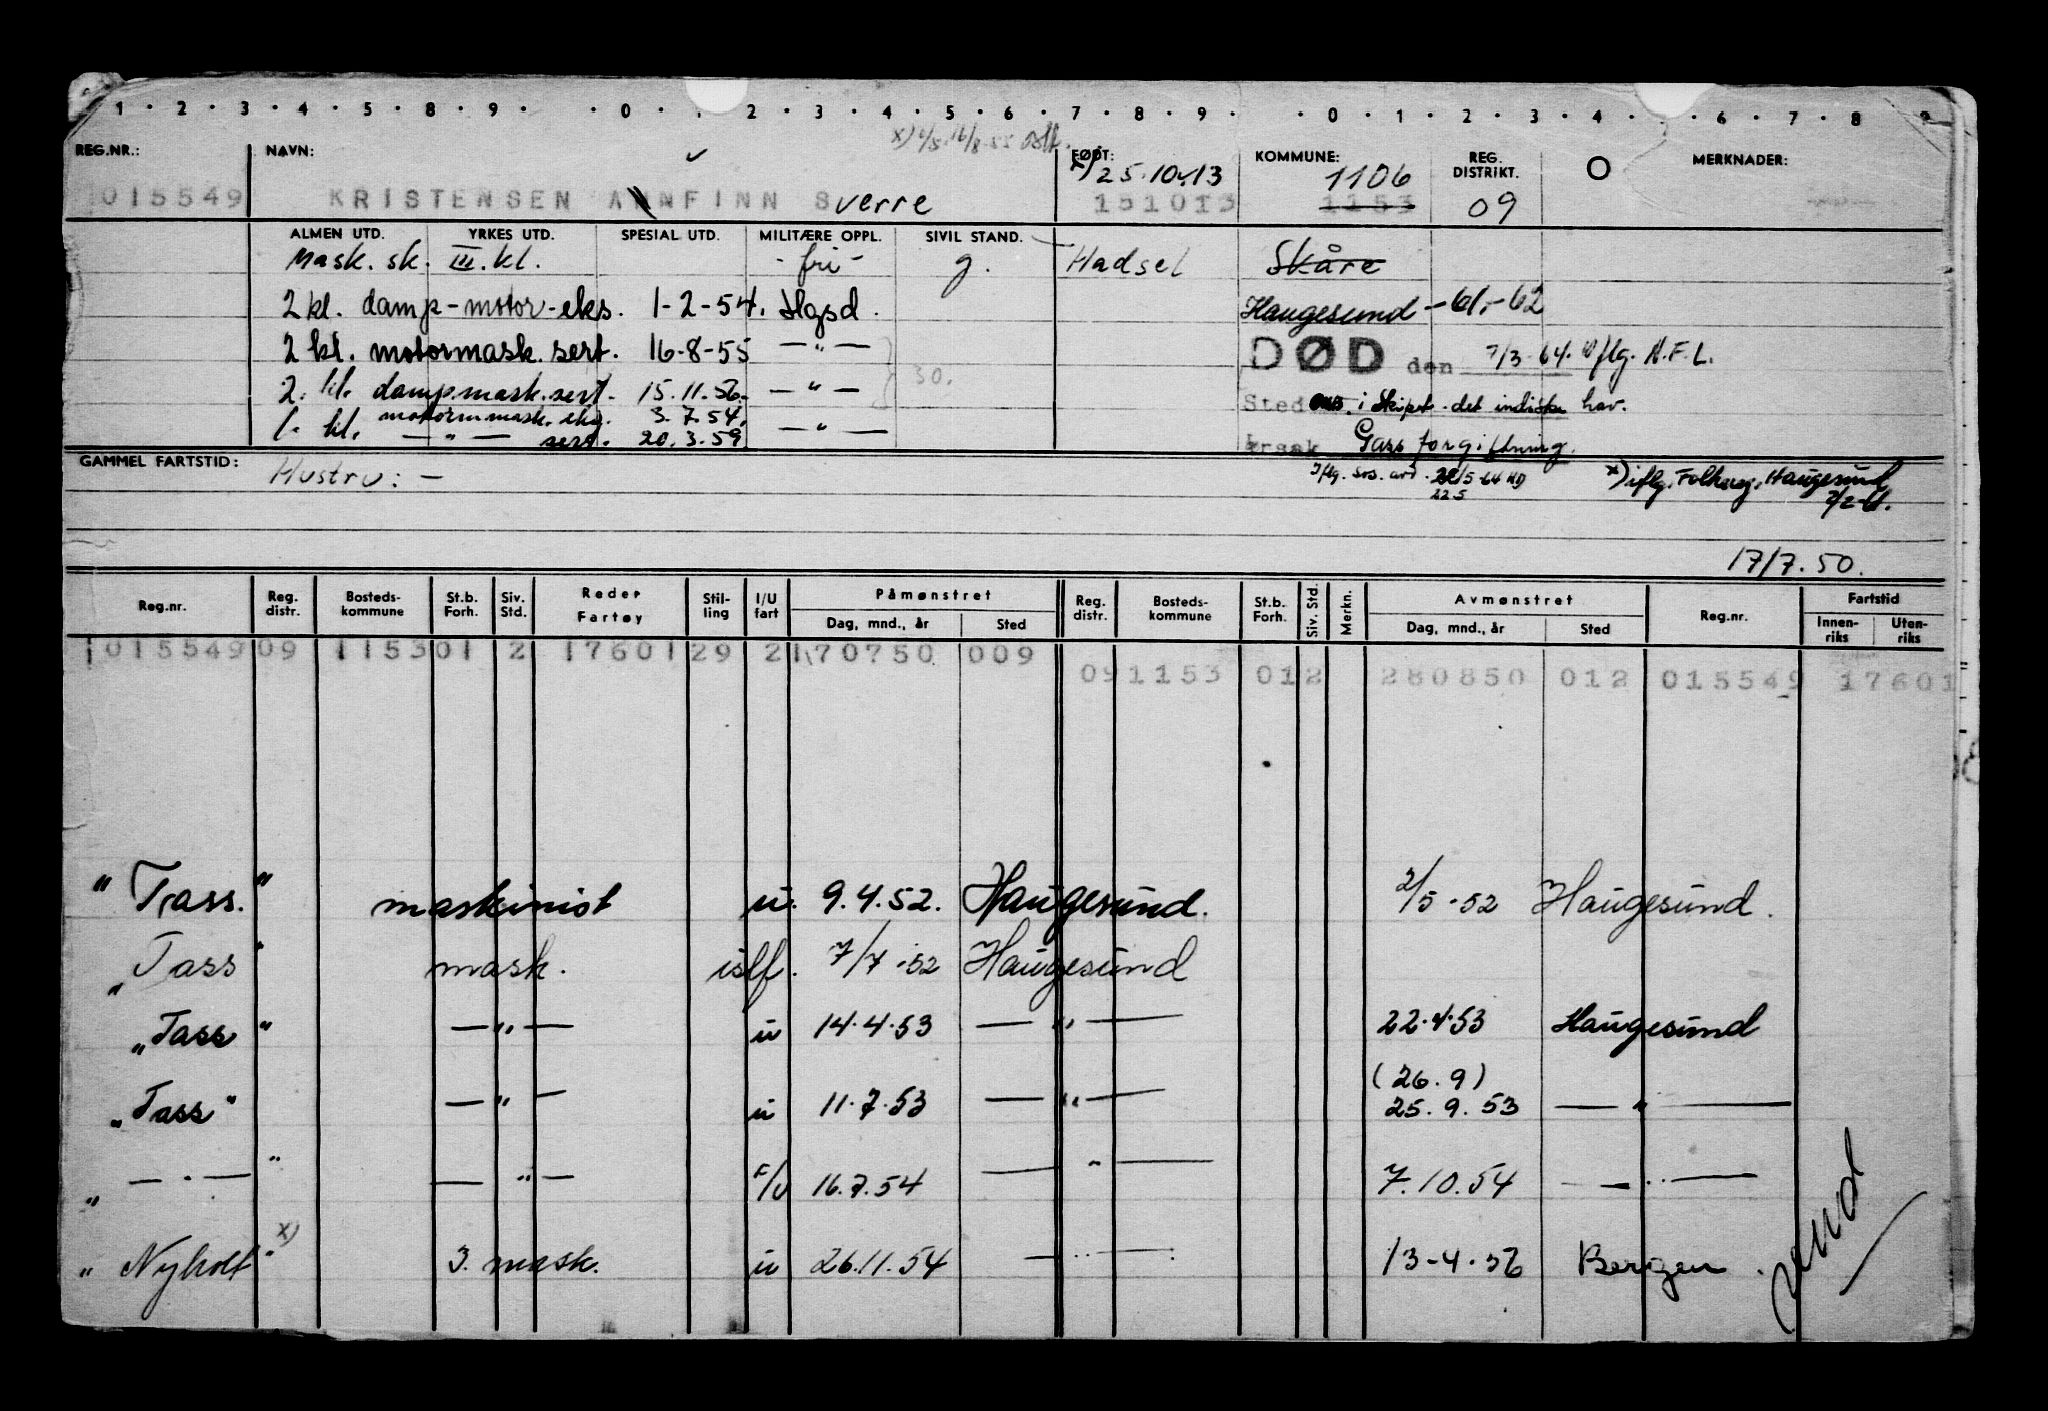 1 · 2 · 3 · 4 · 5 · 8 · 9 · · 0 · · 2 · 3 · 4 · 5 · 6 · 7 · 8 · 9 · · 0 · 1 · 2 · 3 · 4 · · 6 · 7 · 8 · 9
REG.NR.: NAVN: FØDT: KOMMUNE: REG. DISTRIKT. O MERKNADER:
x) 25.10.13 1106
015549 KRISTENSEN ANNFINN Sverre 151013 1153 09
ALMEN UTD. YRKES UTD. SPESIAL UTD. MILITÆRE OPPL. SIVIL STAND.
Mask. sk. III. kl. - fri - g. Hadsel Skåre
2 kl. damp-motor-eks. 1-2-54. Hgsd. Haugesund - 61,- 62
2 kl. motormask. sert. 16-8-55 — " — DØD den 7/3-64. iflg. N.F.L.
2. kl. dampmask. sert. 15.11.56. — " — 30. Sted i skipet. det indiske hav.
1. kl. motormmask. eks. 3.7.54.
— " — sert. 20.3.59. — " — Årsak Gass forgiftning.
GAMMEL FARTSTID: Hustru: - Iflg. sos. avd. 22/5-64 22 5 x) iflg. Folkereg. Haugesund 2/2-61.
17/7.50.
Reg.nr. Reg. distr. Bosteds- kommune St.b. Forh. Siv. Std. Reder Fartøy Stil- ling I/U fart Påmønstret Dag, mnd., år Sted Reg. distr. Bosteds- kommune St.b. Forh. Siv. Std. Merkn. Avmønstret Dag, mnd., år Sted Reg.nr. Fartstid Innen- riks Uten- riks
015549 09 1153 01 2 17601 29 2 170750 009
09 1153 01 2 280850 012 015549 17601
"Trass." maskinist u. 9.4.52. Haugesund. 2/5-52 Haugesund.
"Tass" mask. islf. 7/7-52 Haugesund
"Tass" — " — u 14.4.53 — " — 22.4.53 Haugesund
(26.9)
"Tass" — " — u 11.7.53 — " — 25.9.53 — " —
" — " — " — " — F/U 16.7.54 — " — 7.10.54 — " —
"Nyholt" x) 3. mask. u 26.11.54 — " — 13-4-56 Bergen.
vend